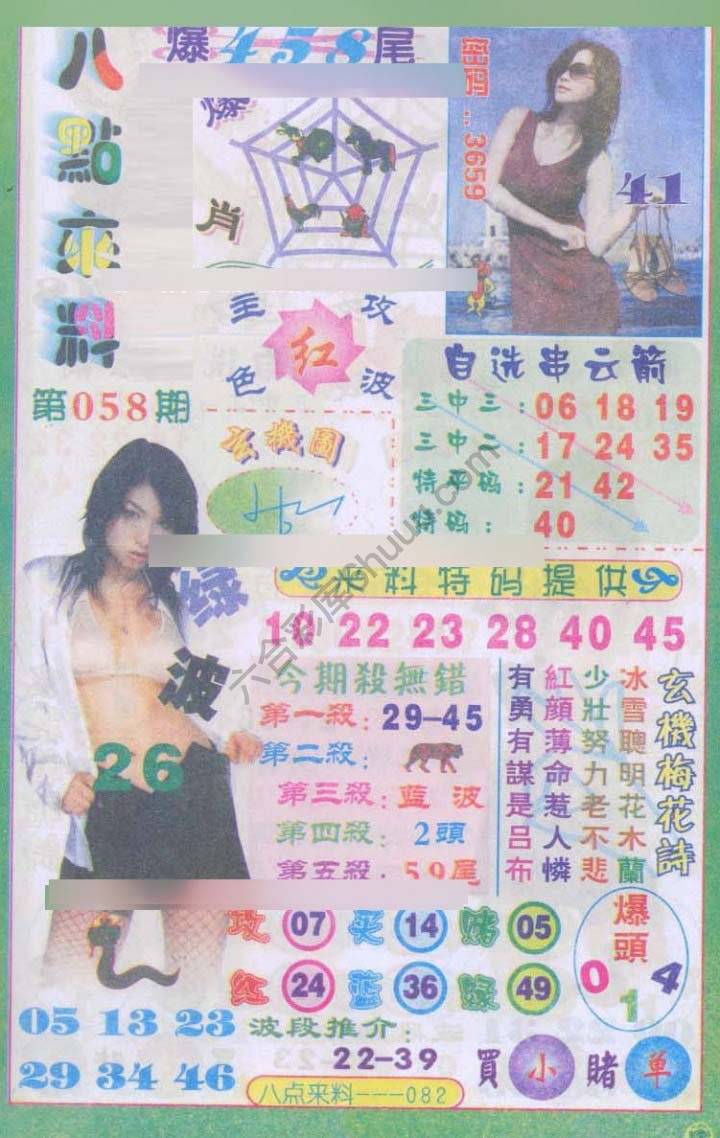 八點來料
爆458尾
爆
肖
田雨..3659
41
主攻
红
色波
第058期
玄機圖
自选串云箭
三中三：06 18 19
三中二：17 24 35
特平码：21 42
特码：40
来料特码提供
绿波
26
10 22 23 28 40 45
今期殺無錯
第一殺：29-45
第二殺：
第三殺：藍波
第四殺：2頭
第五殺：59尾
玄機梅花詩
冰雪聰明花木蘭
少壯努力老不悲
紅顏薄命惹人憐
有勇有謀是呂布
攻 07 买 14 赌 05
红 24 蓝 36 绿 49
爆頭
0 1 4
05 13 23
29 34 46
波段推介：
22-39
買小賭单
八点来料---082
六合彩库6huu.com